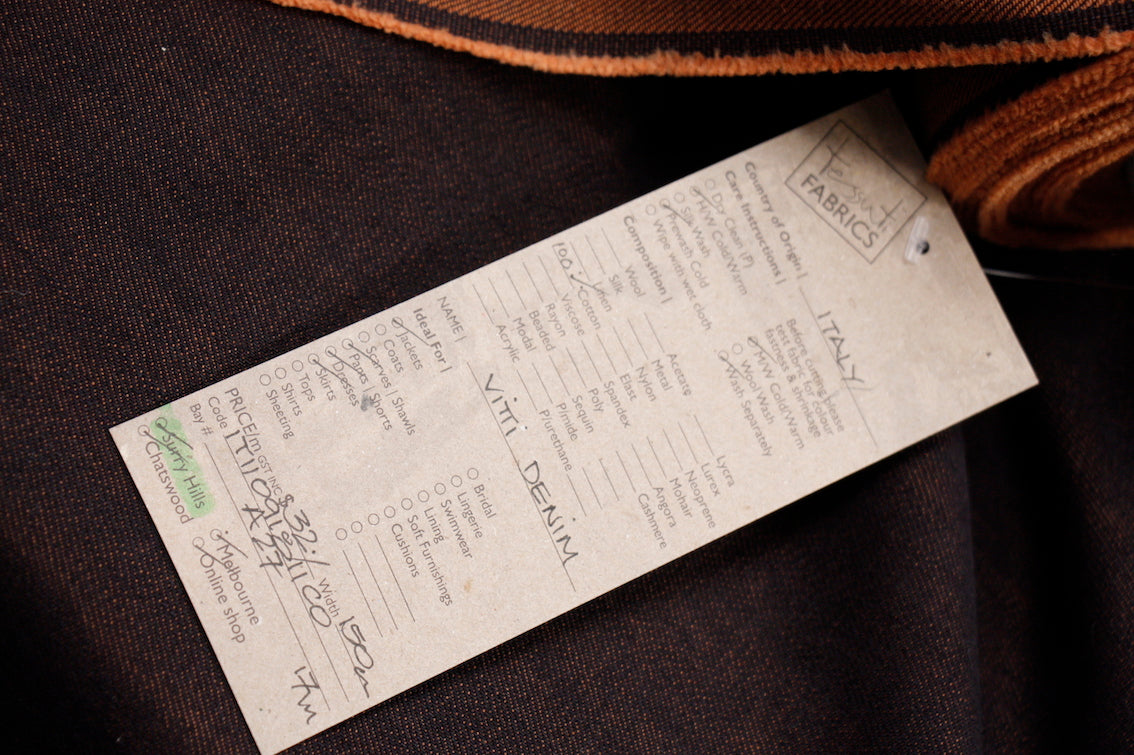 tessuti
FABRICS
Country of Origin | ITALY
Care Instructions | Before cutting please
test fabric for colour
fastness & shrinkage
Dry Clean (P)
H/W Cold/Warm
Silk Wash
Prewash Cold
Wipe with wet cloth
M/W Cold/Warm
Wool Wash
Wash Separately
Composition |
Wool
Silk
Linen
100% Cotton
Viscose
Rayon
Beaded
Modal
Acrylic
Acetate
Metal
Nylon
Elast
Spandex
Poly
Sequin
P/imide
P/urethane
Lycra
Lurex
Neoprene
Mohair
Angora
Cashmere
NAME | VITI DENIM
Ideal For |
Jackets
Coats
Scarves | Shawls
Pants | Shorts
Dresses
Skirts
Tops
Shirts
Sheeting
Bridal
Lingerie
Swimwear
Lining
Soft Furnishings
Cushions
PRICE/m GST INC $32 Width 150cm
Code
Bay # A27 17m
Surry Hills
Chatswood
Melbourne
Online shop